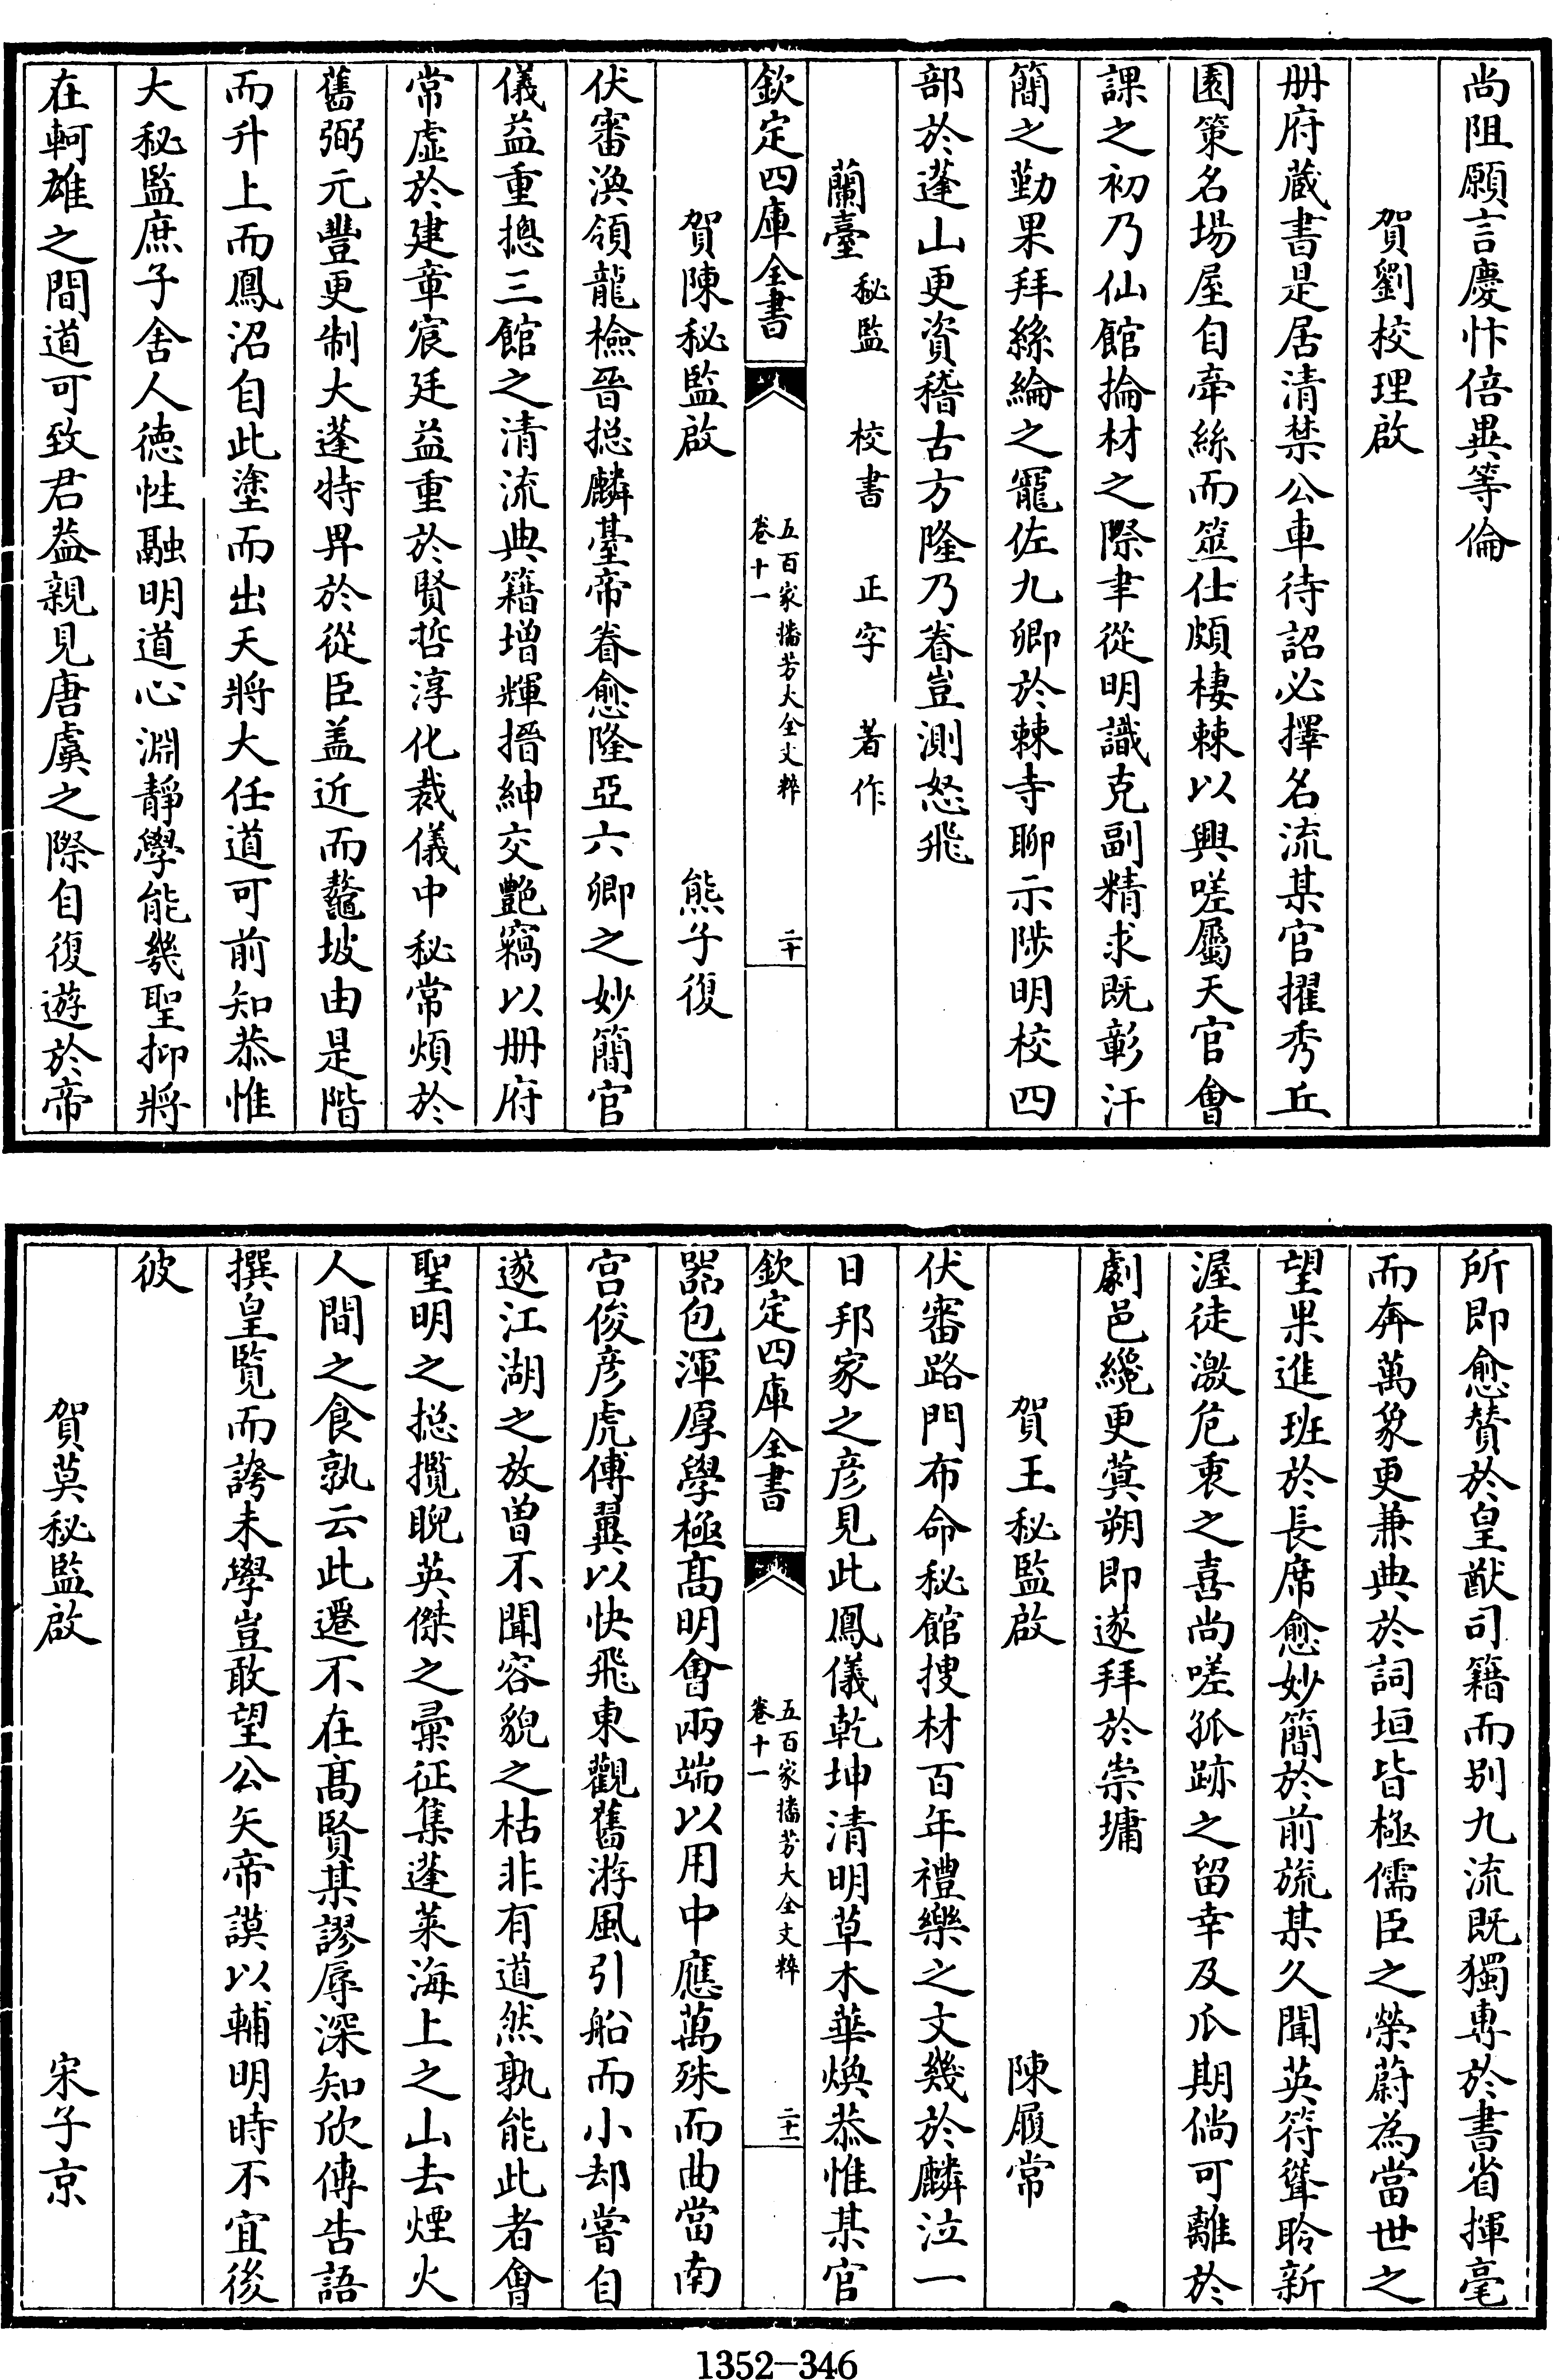 尚阻願言慶忭倍異等倫
賀劉校理啟
册府藏書是居清禁公車待詔必擇名流某官擢秀丘
園策名塲屋自牽絲而筮仕頗棲棘以興嗟屬天官會
課之初乃仙館掄材之際聿從明識克副精求既彰汗
簡之勤果拜絲綸之寵佐九卿於棘寺聊示陟明校四
部於蓬山更資稽古方隆乃眷豈測怒飛
蘭臺 秘監 校書 正字 著作
欽定四庫全書 五百家播芳大全文粹 卷十一 二十
賀陳秘監啟 熊子復
伏審渙領龍檢晉摠麟臺帝眷愈隆亞六卿之妙簡官
儀益重摠三館之清流典籍增輝搢紳交艷竊以册府
常虛於建章宸廷益重於賢哲淳化裁儀中秘常煩於
舊弼元豐更制大蓬特畀於從臣盖近而鼇坡由是階
而升上而鳳沼自此塗而出天將大任道可前知恭惟
大秘監庶子舍人德性融明道心淵靜學能幾聖抑將
在軻雄之間道可致君葢親見唐虞之際自復遊於帝
所即愈贊於皇猷司籍而别九流既獨專於書省揮毫
而奔萬象更兼典於詞垣皆極儒臣之榮蔚為當世之
望果進班於長席愈妙簡於前旒某久聞英符聳聆新
渥徒激危衷之喜尚嗟孤跡之留幸及爪期倘可離於
劇邑纔更蓂朔即遂拜於崇墉
賀王秘監啟 陳履常
伏審路門布命秘館捜材百年禮樂之文幾於麟泣一
日邦家之彦見此鳳儀乾坤清明草木華煥恭惟某官
欽定四庫全書 五百家播芳大全文粹 卷十一 二十一
器包渾厚學極髙明會兩端以用中應萬殊而曲當南
宫俊彦虎傅翼以快飛東觀舊游風引船而小却嘗自
遂江湖之放曽不聞容貌之枯非有道然孰能此者會
聖明之摠攬睨英傑之彙征集蓬萊海上之山去煙火
人間之食孰云此遷不在髙賢某謬辱深知欣傳告語
撰皇覧而誇未學豈敢望公矢帝謨以輔明時不宜後
彼
賀莫秘監啟 宋子京
1352-346